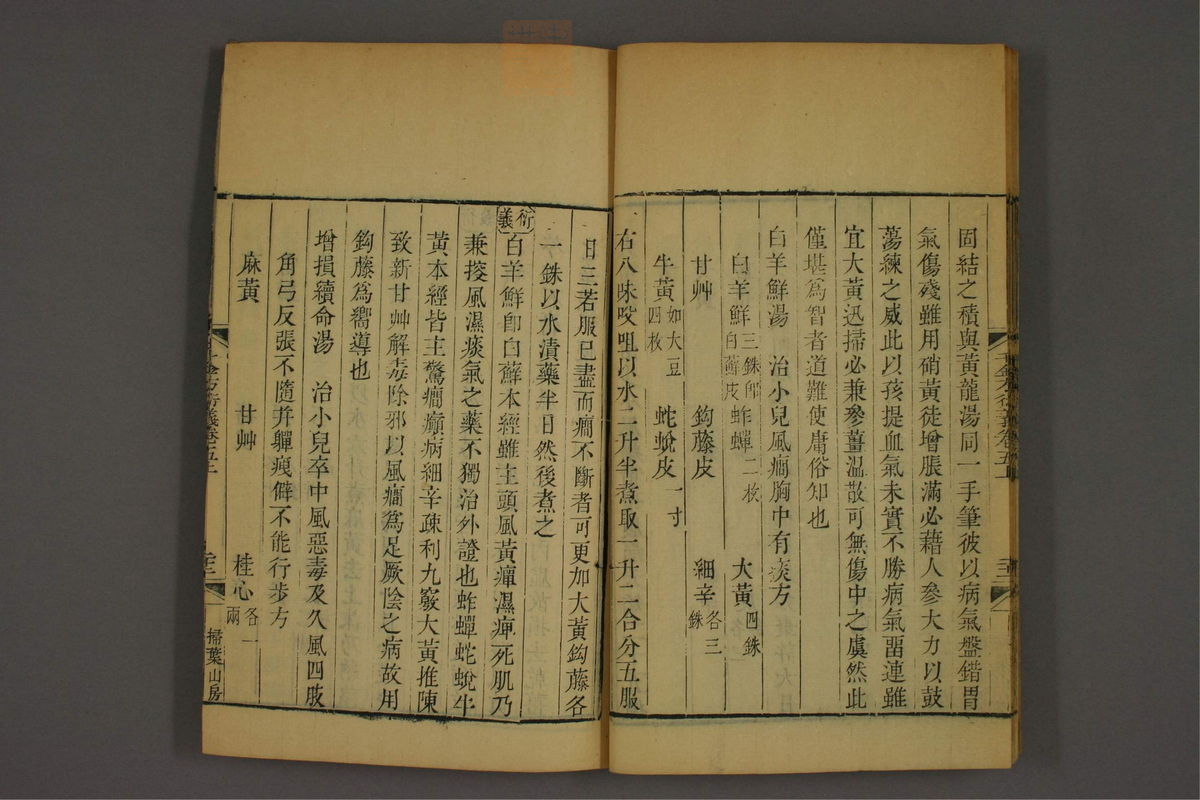 固結之積與黃龍湯同一手筆彼以病氣盤錯胃
氣傷殘雖用硝黃徒增脹滿必藉人參大力以鼓
蕩練之威此以孩提血氣未實不勝病氣畱連雖
宜大黃迅掃必兼參薑溫散可無傷中之虞然此
僅堪爲智者道難使庸俗知也
白羊鮮湯　治小兒風癎胸中有痰方
白羊鮮三銖卽白蘚皮　蚱蟬二枚　大黃四銖
甘艸　鈎藤皮　細辛各三銖
牛黃如大豆四枚　蛇蛻皮一寸
右八味㕮咀以水二升半煮取一升二合分五服
日三若服已盡而癎不斷者可更加大黃鈎藤各
一銖以水漬藥半日然後煮之
衍義
白羊鮮卽白蘚本經雖主頭風黃癉濕痺死肌乃
兼搜風濕痰氣之藥不獨治外證也蚱蟬蛇蛻牛
黃本經皆主驚癎癲病細辛疎利九竅大黃推陳
致新甘艸解毒除邪以風癎爲足厥陰之病故用
鈎藤爲嚮導也
增損續命湯　治小兒卒中風惡毒及久風四肢
角弓反張不隨并嚲瘓僻不能行步方
麻黃　甘艸　桂心各一兩
千金方衍義卷五上
掃葉山房